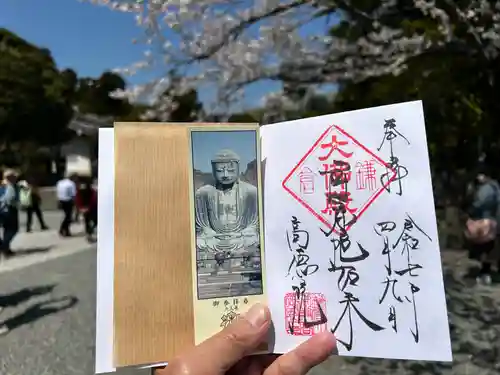 奉拝
令七年
四月九日
鎌倉
大佛殿
阿弥陀如来
高徳院